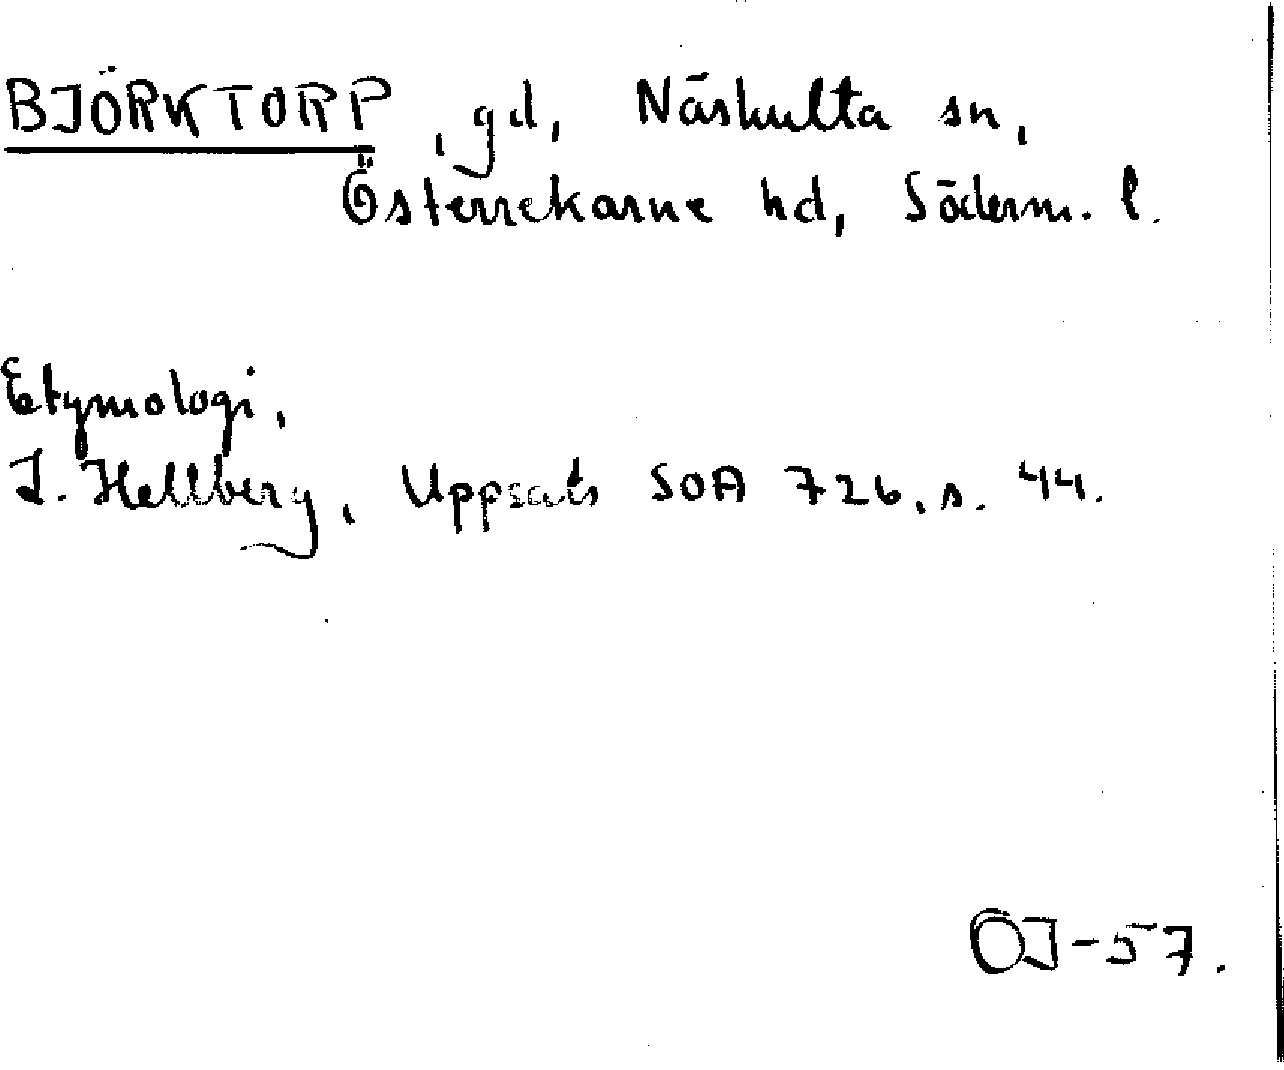 BJÖRKTORP, gd, Näshulta sn,
Österrekarne hd, Söderm. l.
Etymologi,
L. Hellberg, Uppsats SOA 726, s. 44.
OJ-57.